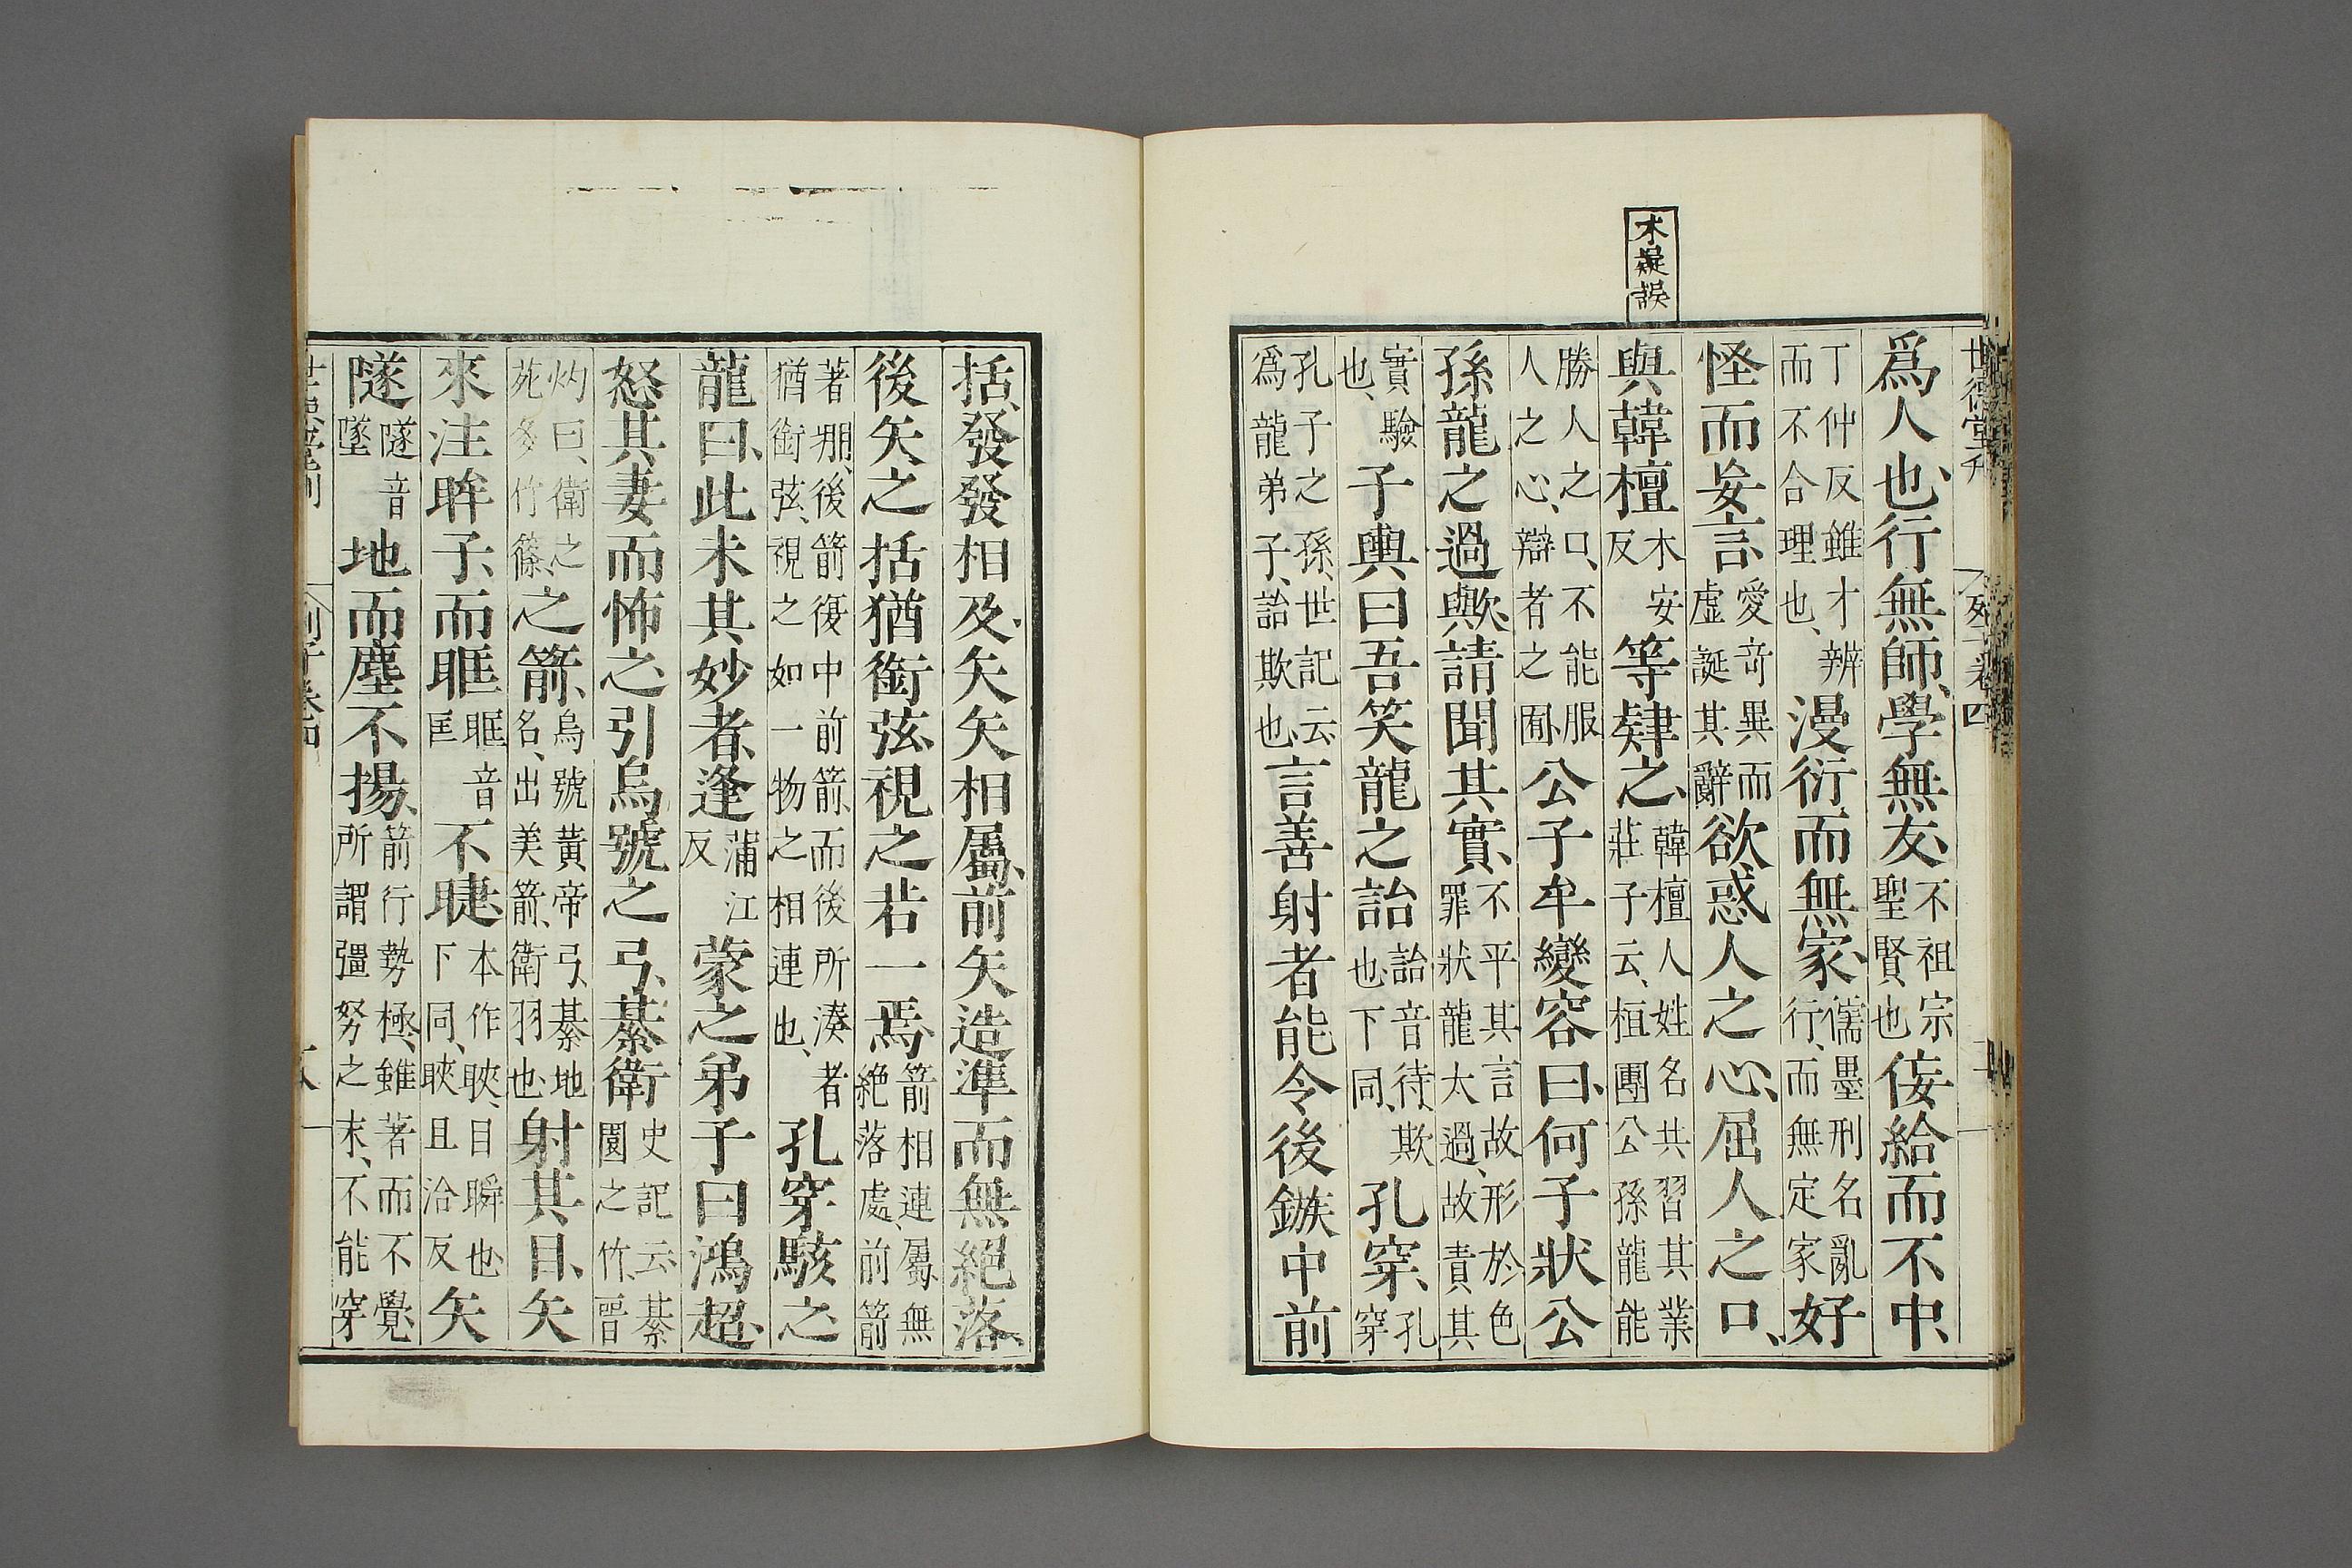 木疑誤
世德堂刊
列子卷四
爲人也、行無師、學無友、不祖宗聖賢也佞給而不中、
丁仲反雖才辨而不合理也、漫衍而無家、儒墨刑名亂行、而無定家好
怪而妄言、愛奇異而虛誕其辭欲惑人之心、屈人之口、
與韓檀木安反等肄之、韓檀人姓名共習其業莊子云、桓團公孫龍能
勝人之口、不能服人之心、辯者之囿、公子牟變容曰、何子狀公
孫龍之過歟、請聞其實、不平其言故形於色罪狀龍太過、故責其
實驗也、子輿曰吾笑龍之詒詒音待、欺也、下同、孔穿、孔穿
孔子之孫、世記云、爲龍弟子、詒欺也、言善射者能令後鏃中前
括、發發相及、矢矢相屬、前矢造準而無絕落、
後矢之括猶銜弦、視之若一焉、箭相連屬、無絕落處、前箭
著堋、後箭復中前箭、而後所湊者猶銜弦、視之如一物之相連也、孔穿駭之
龍曰、此未其妙者、逢蒲江反蒙之弟子曰鴻超、
怒其妻而怖之、引烏號之弓、綦衛史記云、綦園之竹、晉
灼曰、衛之苑多竹篠、之箭、烏號黃帝弓、綦地名、出美箭、衛羽也、射其目、矢
來注眸子、而眶眶音匡不睫、本作䀹、目瞬也、下同、䀹且洽反矢
隧隧音墜地而塵不揚、箭行勢極、雖著而不覺所謂彊弩之末、不能穿
列子卷四